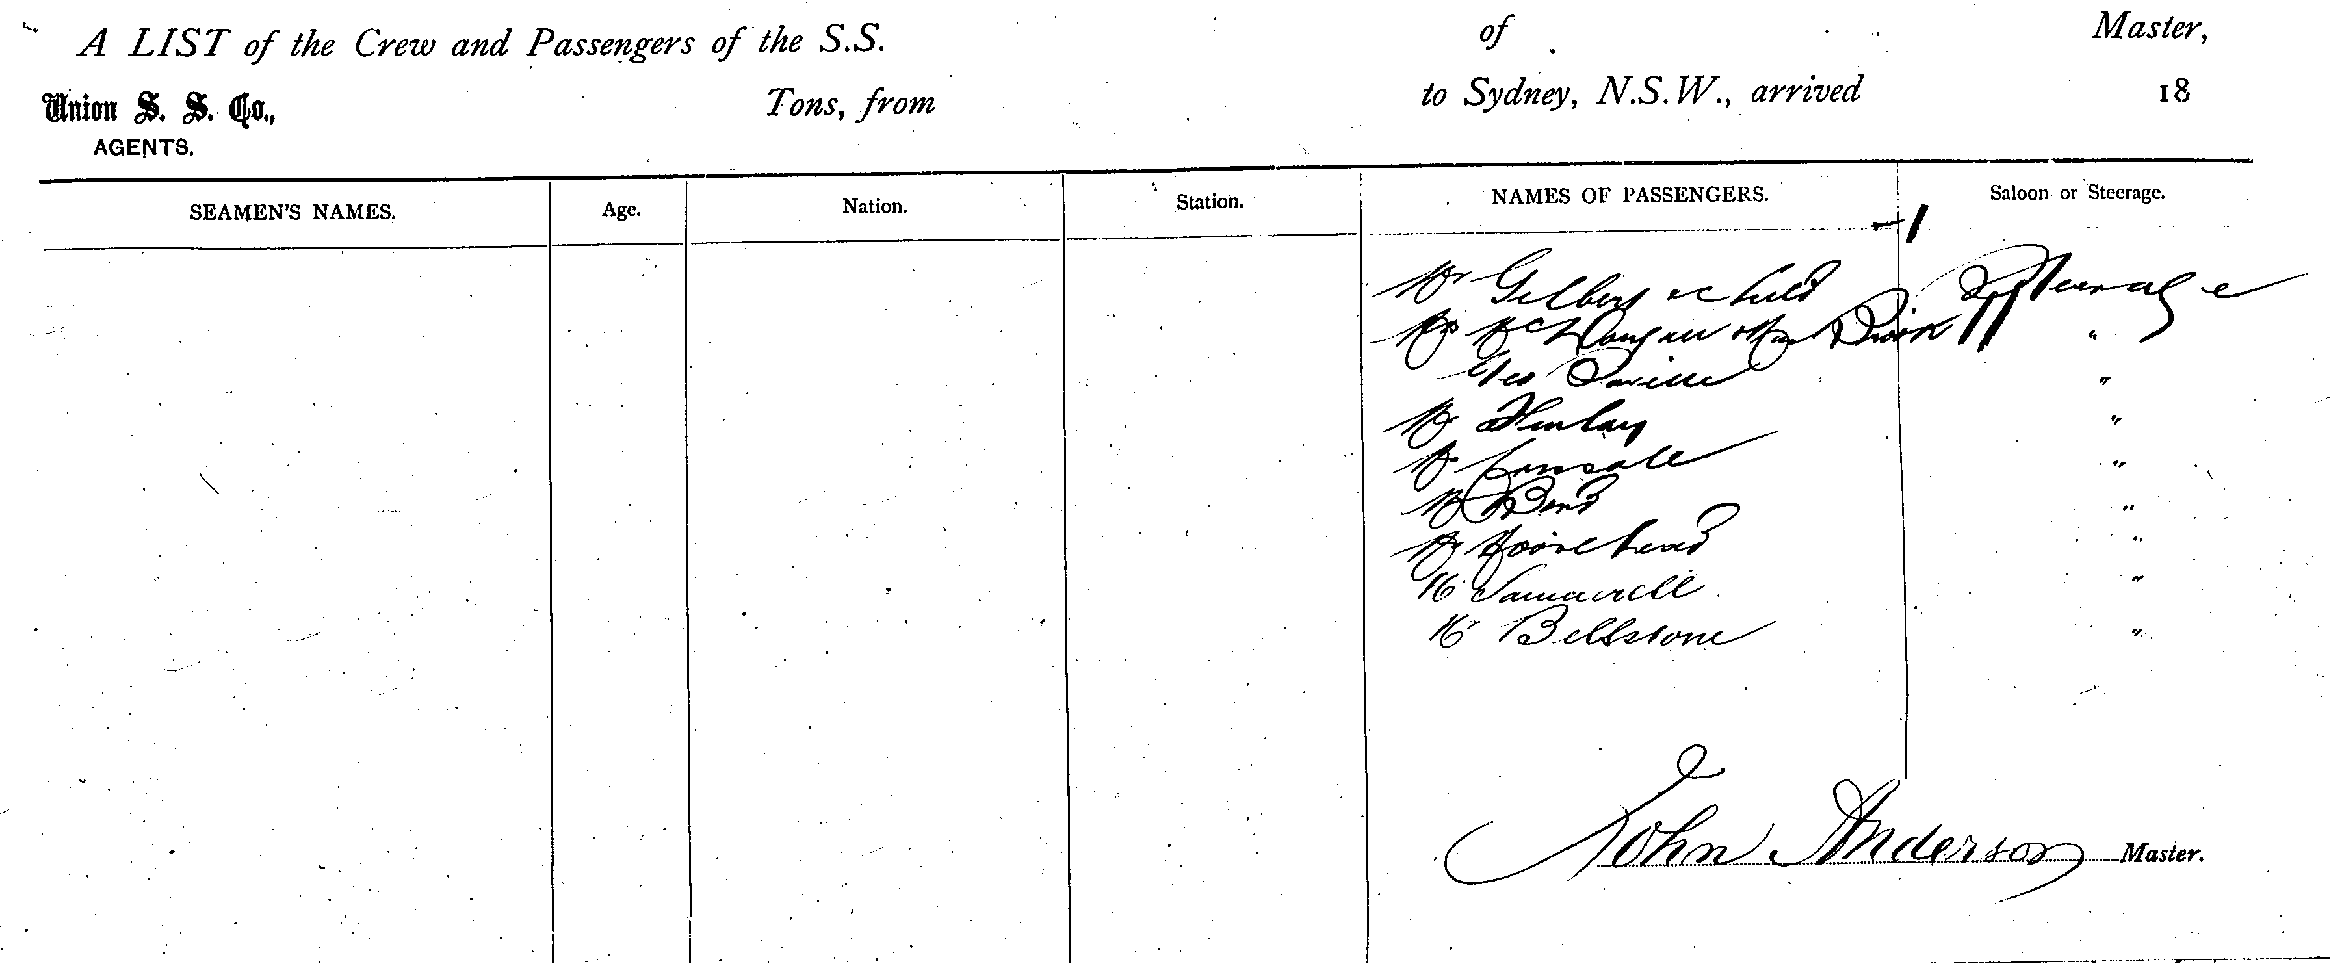 A LIST of the Crew and Passengers of the S.S. of Master,
Union S. S. Co., Tons, from to Sydney, N.S.W., arrived 18
AGENTS.
SEAMEN'S NAMES. Age. Nation. Station. NAMES OF PASSENGERS. Saloon or Steerage.
Mr Gilbert & Child Steerage
Mr McDougall "
Geo Saville "
Mr Finlay "
Mr "
Mr Bird "
Mr Moorehead "
Mr "
Mr Bellstone "
John Anderson Master.